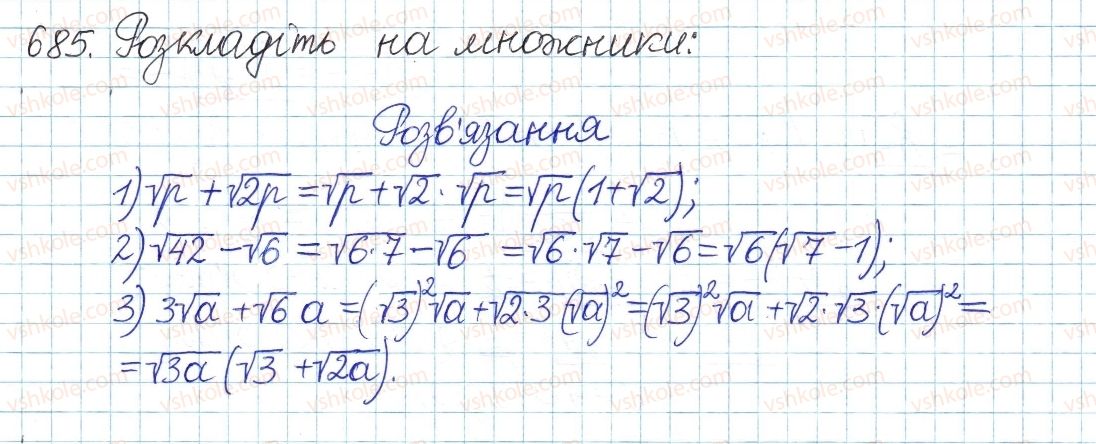 685. Розкладіть на множники:
Розв'язання
1) √p + √2p = √p + √2 · √p = √p (1 + √2);
2) √42 − √6 = √6·7 − √6 = √6 · √7 − √6 = √6 (√7 − 1);
3) 3√a + √6 a = (√3)² √a + √2·3 (√a)² = (√3)² √a + √2 · √3 · (√a)² =
= √3a (√3 + √2a).